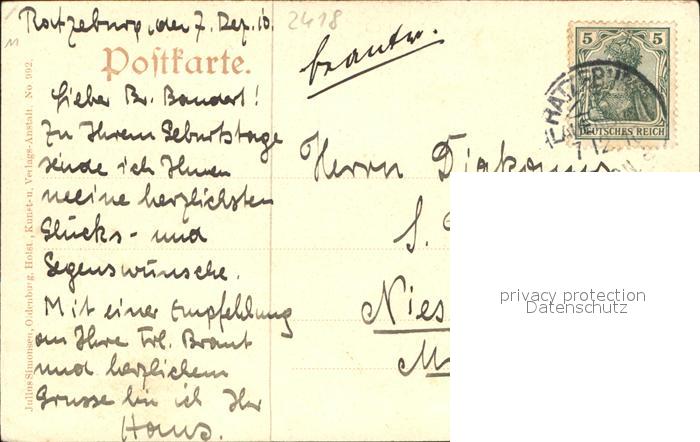 Ratzeburg, den 7. Dez. 10.
2418
11
Postkarte.
beantw.
Lieber Br. Bandert!
Zu Ihrem Geburtstage
sende ich Ihnen
meine herzlichsten
Glücks- und
Segenswünsche.
Mit einer Empfehlung
an Ihre Frl. Braut
und herzlichem
Grusse bin ich Ihr
Hans.
Julius Simonsen, Oldenburg, Holst., Kunst- u. Verlags-Anstalt. No 992.
5 5
DEUTSCHES REICH
RATZEBU
7.12.
Herrn Diakonus
S.
Nies
M
privacy protection
Datenschutz